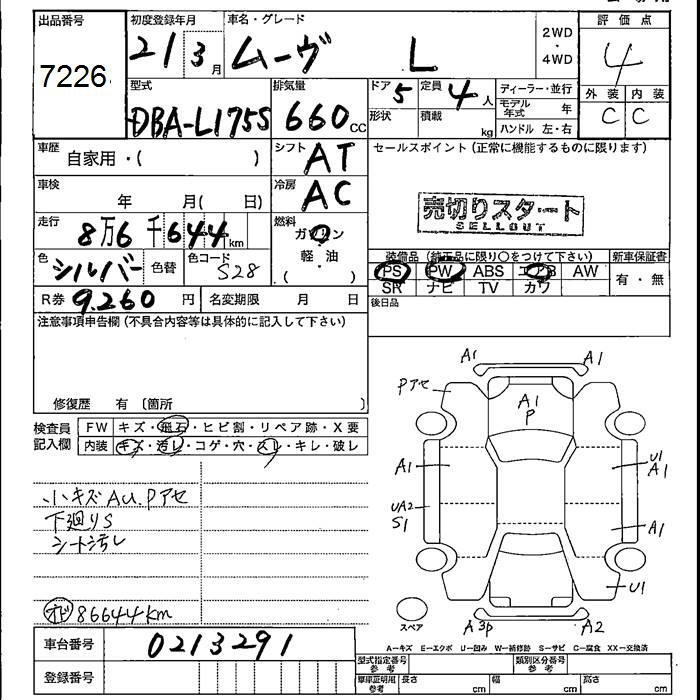 出品番号 初度登録年月 車名・グレード 2WD 評価点
7226 21 3月 ムーヴ L ・ 4WD 4
型式 排気量 ドア 定員 ディーラー・並行 外装 内装
DBA-L175S 660cc 5 4人 モデル年式 年 C C
形状 積載 kg ハンドル 左・右
車歴 自家用・( ) シフト AT セールスポイント(正常に機能するものに限ります)
車検 年 月( 日) 冷房 AC
売切りスタート
SELLOUT
走行 8万6千644km 燃料 ガソリン
軽・油
( )
色 シルバー 色替 色コード S28
装備品(純正品に限り○をつけて下さい) 新車保証書
PS PW ABS エアB AW 有・無
SR ナビ TV カワ
R券 9,260円 名変期限 月 日 後日品
注意事項申告欄(不具合内容等は具体的に記入して下さい)
修復歴 有 〔箇所 〕
検査員記入欄 FW キズ・飛石・ヒビ割・リペア跡・X要
内装 キズ・汚レ・コゲ・穴・スレ・キレ・破レ
小キズAU.Pアセ
下廻りS
シート汚レ
オド 86644km
A1 A1
Pアセ
A1
P
A1 U1
A1
UA2
S1 A1
U1
スペア A3P A2
A-キズ E-エクボ U-凹み W-補修跡 S-サビ C-腐食 XX-交換済
車台番号 0213291
型式指定番号参考 類別区分番号参考
登録番号
車庫証明用参考 長さ cm 幅 cm 高さ cm